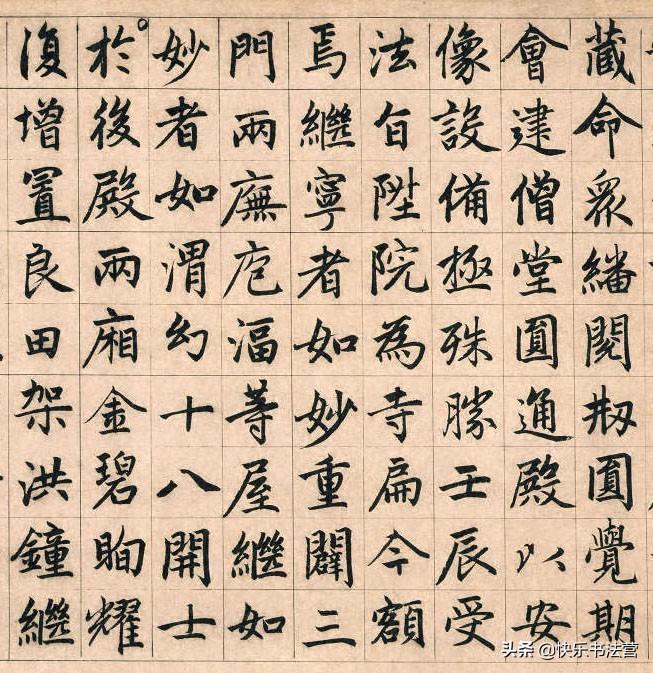 藏命眾繙閱刱圓覺期
會建僧堂圓通殿以安
像設備極殊勝壬辰受
法旨陞院為寺扁今額
焉繼寧者如妙重闢三
門兩廡庖湢等屋繼如
妙者如渭幻十八開士
於後殿兩廂金碧眴耀
復增置良田架洪鐘繼
头条 @快乐书法营